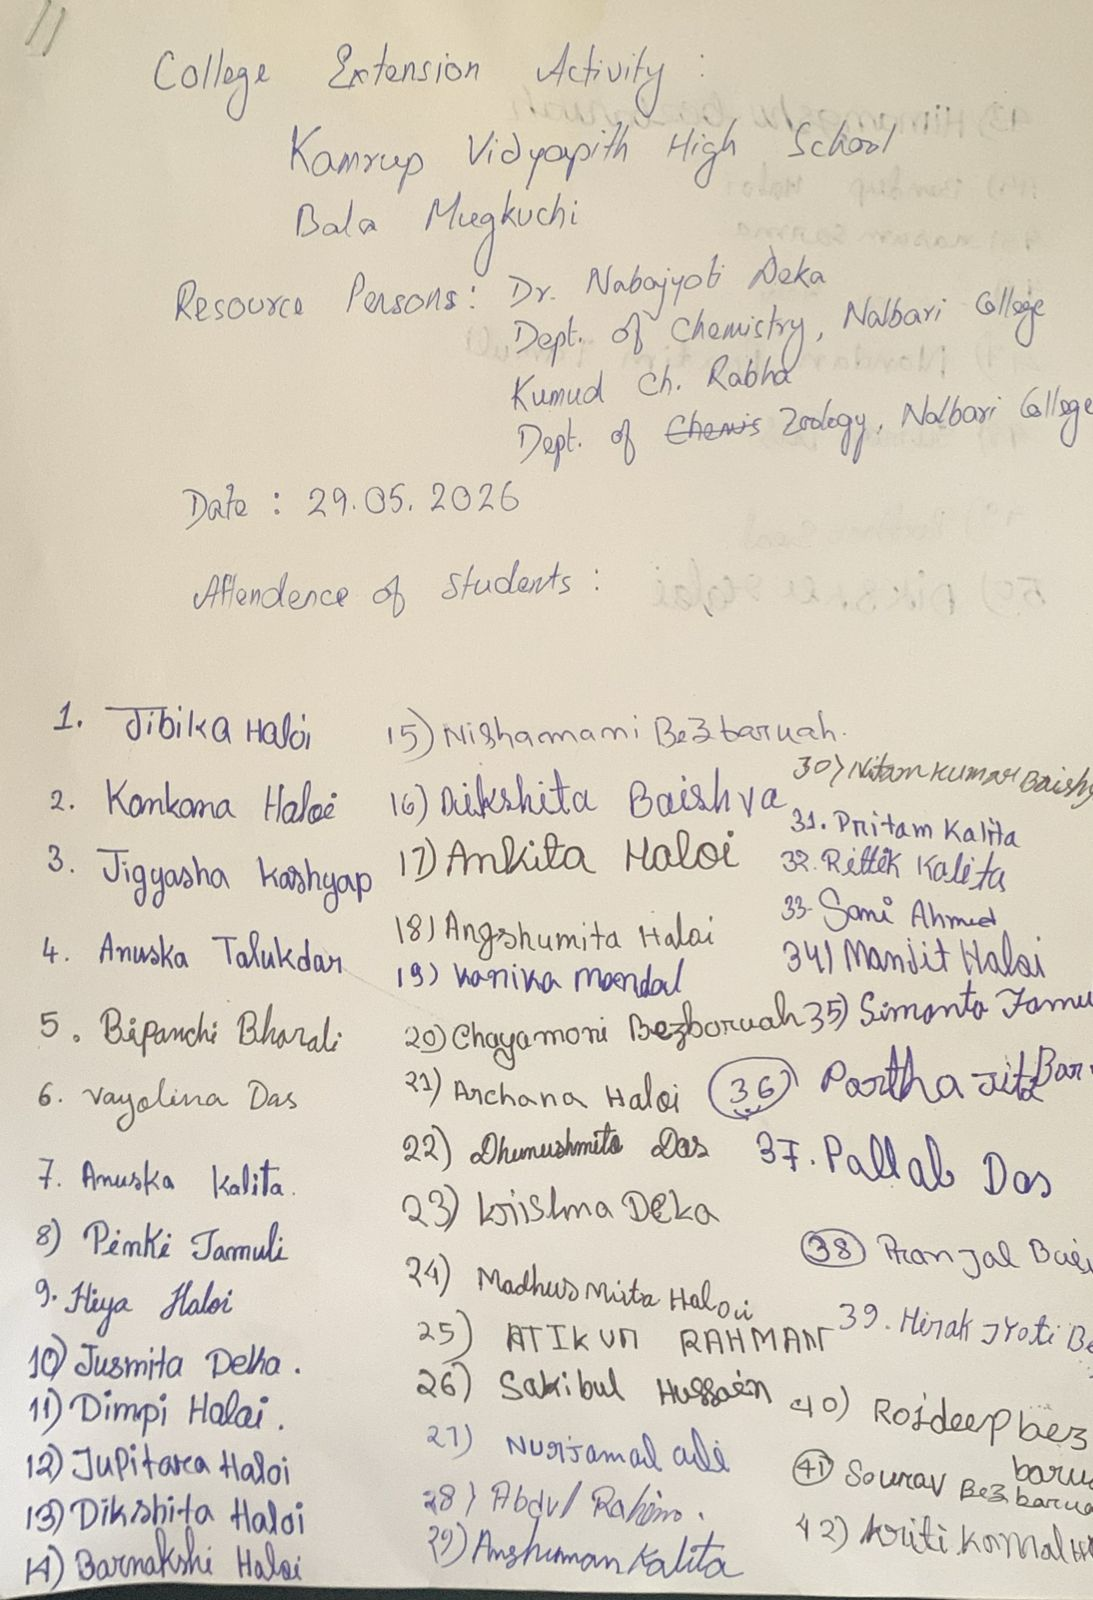 College Extension Activity :
Kamrup Vidyapith High School
Bala Mugkuchi
Resource Persons : Dr. Nabajyoti Deka
Dept. of Chemistry, Nalbari College
Kumud Ch. Rabha
Dept. of Zoology, Nalbari College
Date : 29.05.2026
Attendence of Students :
1. Jibika Haloi
2. Konkona Haloi
3. Jigyasha Kashyap
4. Anuska Talukdar
5. Bipanchi Bharali
6. Vayolina Das
7. Anuska Kalita.
8) Pinki Tamuli
9. Hiya Haloi
10) Jusmita Deka.
11) Dimpi Haloi.
12) Jupitara Haloi
13) Dikshita Haloi
14) Barnakshi Haloi
15) Nishamami Bezbaruah.
16) Dikshita Baishya
17) Ankita Haloi
18) Angshumita Haloi
19) Kanika Mandal
20) Chayamoni Bezboruah
21) Archana Haloi
22) Dhunushmita Das
23) Krishma Deka
24) Madhusmita Haloi
25) ATIKUR RAHMAN
26) Sakibul Hussain
27) Nurjamal Ali
28) Abdul Rahim.
29) Anshuman Kalita
30) Nitam Kumar
31. Pritam Kalita
32. Rittik Kalita
33. Sami Ahmed
34) Manjit Haloi
35) Simanta
36) Partha Jit
37. Pallab Das
38) Pranjal
39. Hirak Jyoti
40) Rojdeep bez
41) Sourav Bezbarua
42) Kriti Komal